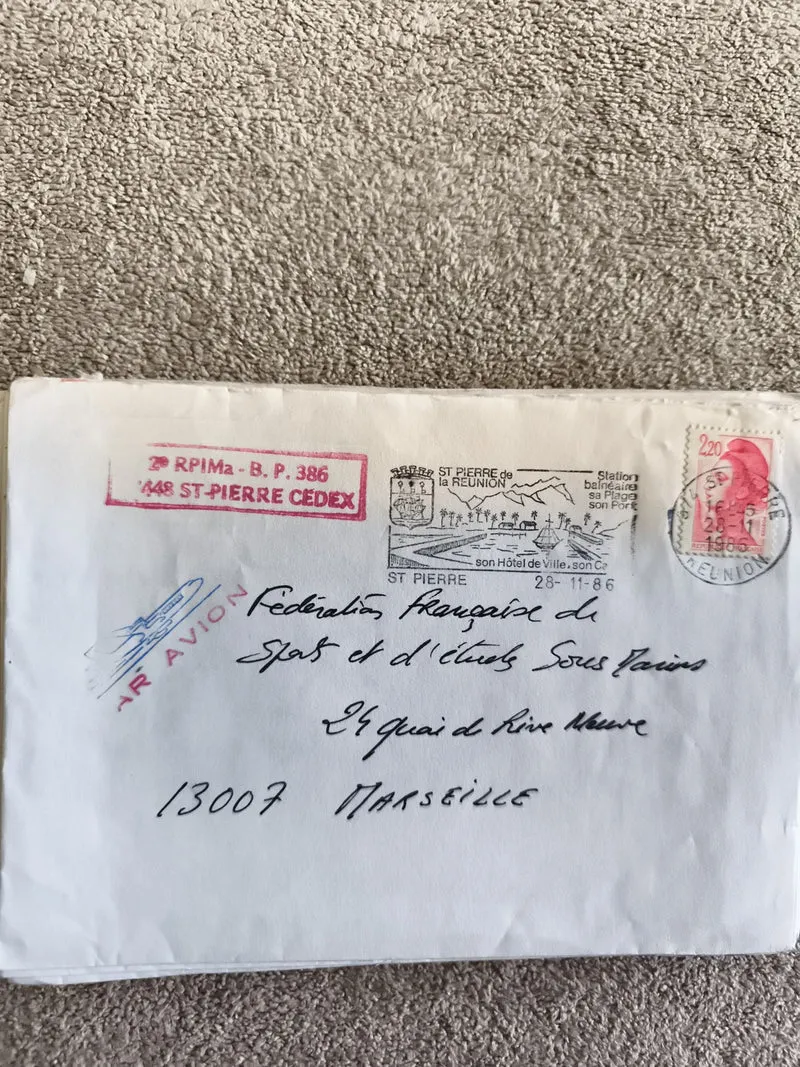 2e RPIMa - B. P. 386
448 ST-PIERRE CEDEX
ST PIERRE de
la REUNION
Station
balnéaire
sa Plage
son Port
son Hôtel de Ville, son Ca
ST PIERRE 28-11-86
2,20
16H
28-11
1986
REUNION
PAR AVION
Fédération Française de
Sports et d'études Sous Marins
24 quai de Rive Neuve
13007 MARSEILLE